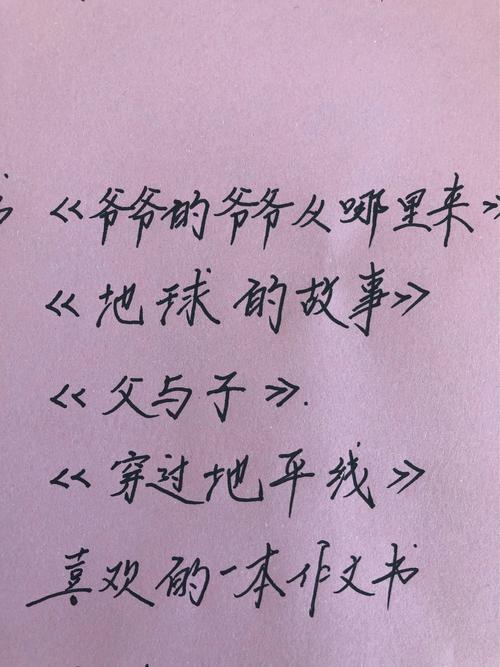 《爷爷的爷爷从哪里来》
《地球的故事》
《父与子》.
《穿过地平线》
喜欢的一本作文书